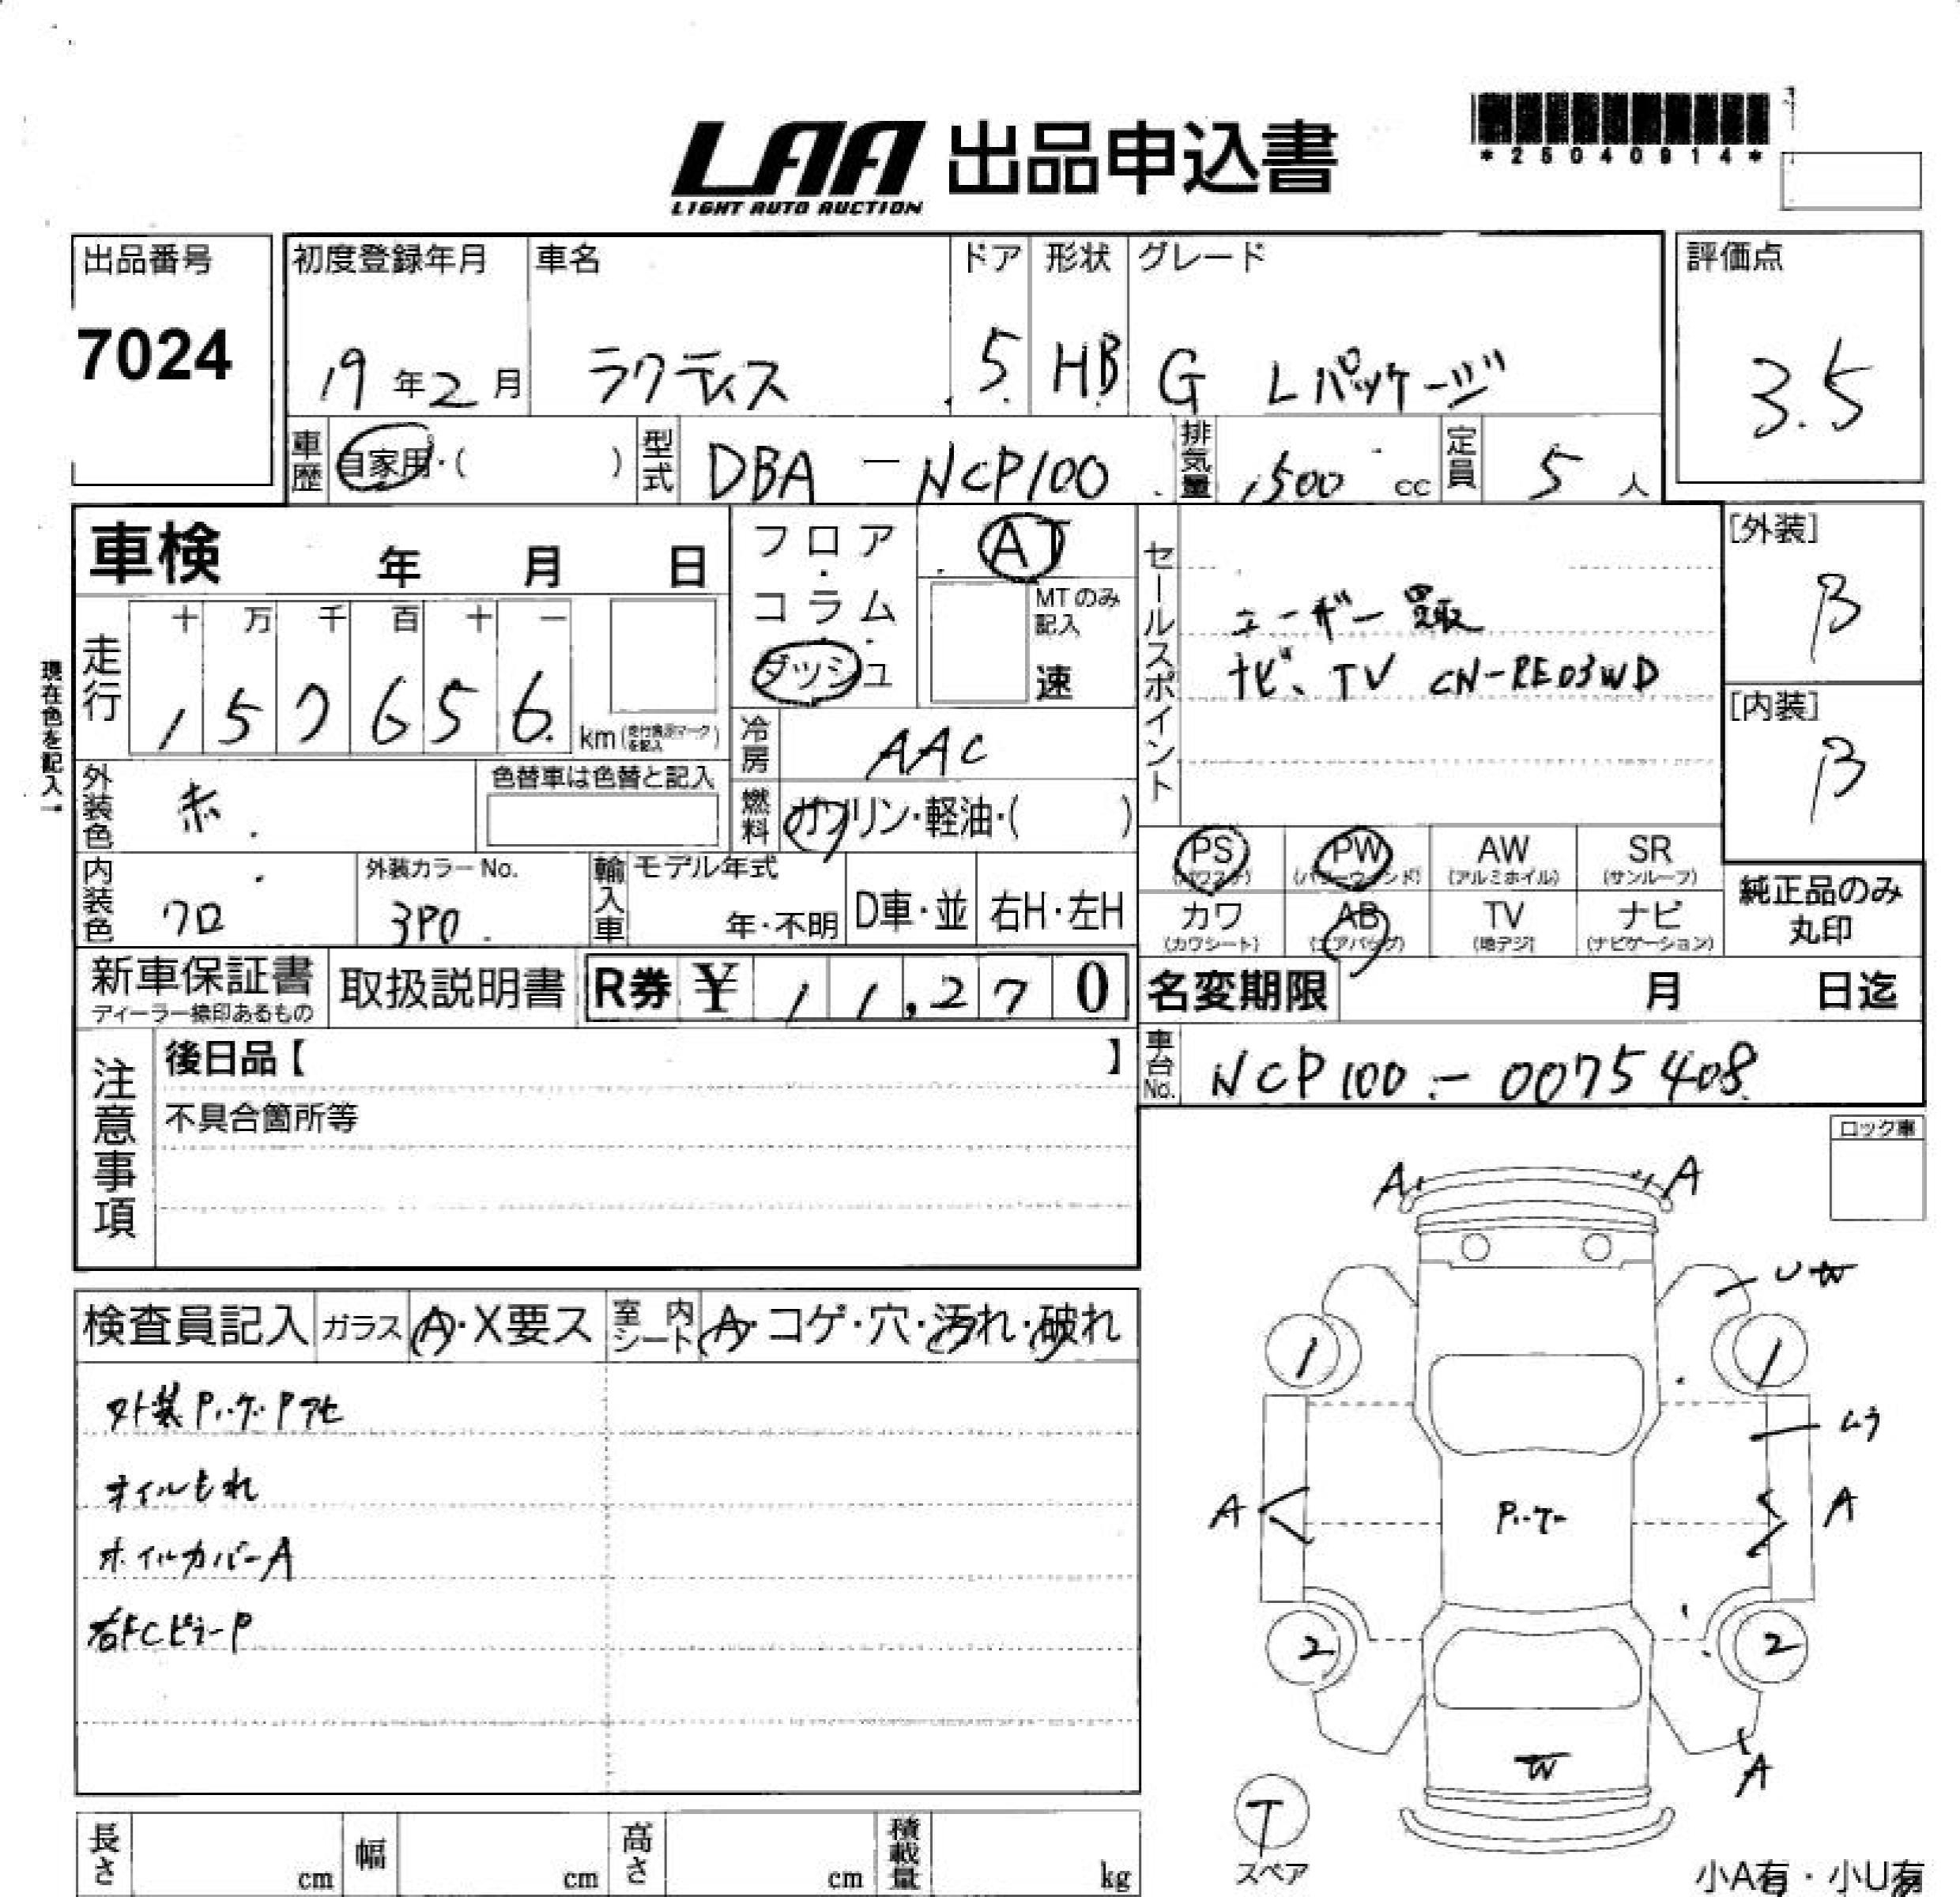 LAA 出品申込書
LIGHT AUTO AUCTION
*25040914*
出品番号
7024
初度登録年月
19年2月
車名
ラクティス
ドア
5
形状
HB
グレード
G Lパッケージ
評価点
3.5
車歴
自家用・( )
型式
DBA - NCP100
排気量
1500 cc
定員
5 人
車検 年 月 日
フロア・コラム・ダッシュ
AT
MTのみ記入
速
セールスポイント
ユーザー買取
ナビ、TV CN-RE03WD
[外装]
B
[内装]
B
現在色を記入→
走行
十 万 千 百 十 一
1 5 7 6 5 6 km
冷房
AAC
外装色
赤
色替車は色替と記入
燃料
ガソリン・軽油・( )
PS
(パワステ)
PW
(パワーウィンド)
AW
(アルミホイル)
SR
(サンルーフ)
カワ
(カワシート)
AB
(エアバッグ)
TV
(地デジ)
ナビ
(ナビゲーション)
純正品のみ丸印
内装色
クロ
外装カラーNo.
3P0
輸入車
モデル年式
年・不明
D車・並
右H・左H
新車保証書
ディーラー捺印あるもの
取扱説明書
R券 ¥ 1 1,2 7 0
名変期限 月 日迄
車台No.
NCP100-0075408
注意事項
後日品【 】
不具合箇所等
ロック車
検査員記入
ガラス
A・X要ス
室内シート
A・コゲ・穴・汚れ・破れ
外装P、ケ、Pアセ
オイルもれ
ホイルカバーA
右FCピラーP
A A
U W
1 1
ムラ
A A
P、ケ
2 2
W
A
T
スペア
長さ cm
幅 cm
高さ cm
積載量 kg
小A有・小U有